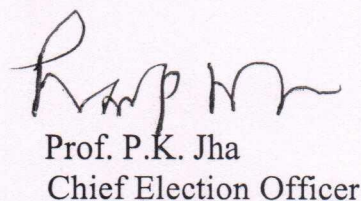 Prof. P.K. Jha
Chief Election Officer